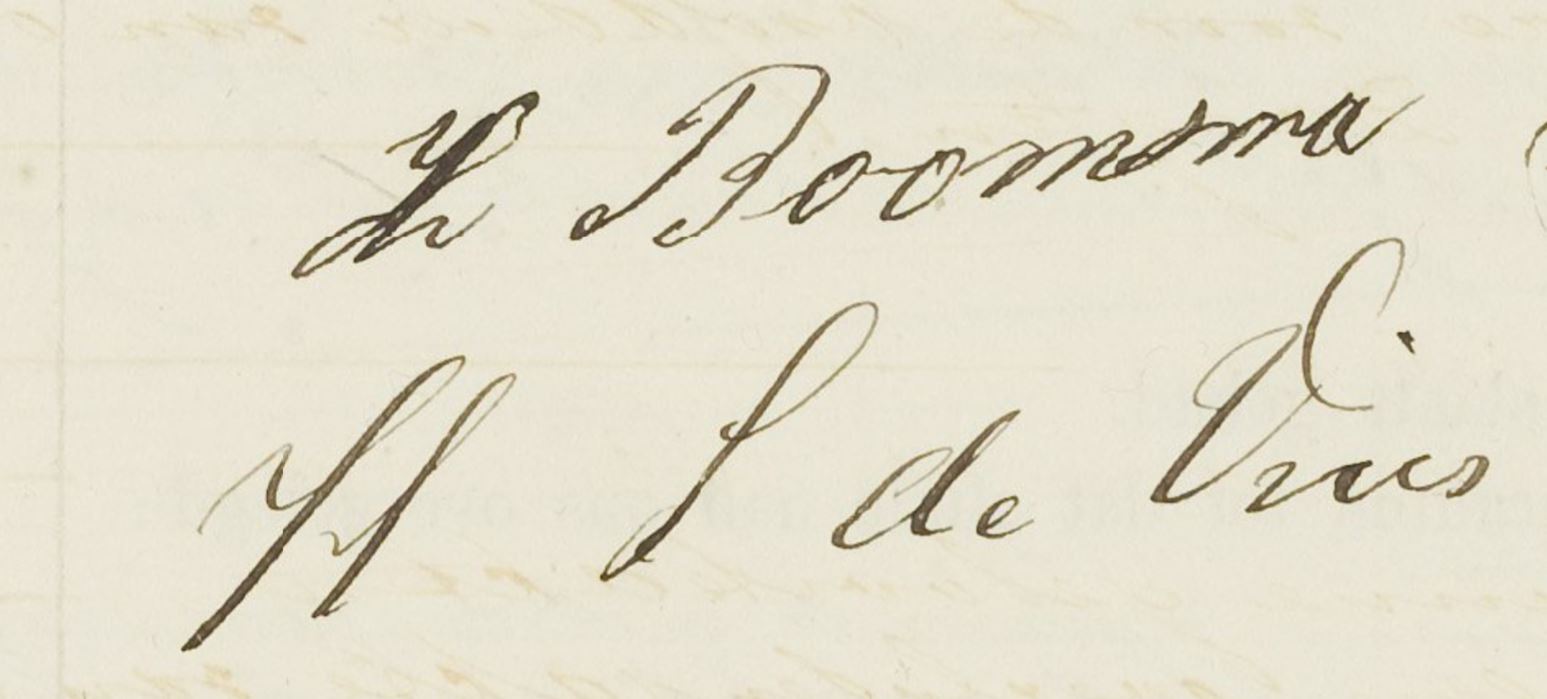 Boomsma
H S de Vries